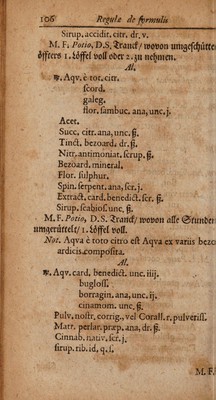 106 Regulæ de formulis
Sirup. accidit. citr. dr. v.
M. F. Potio, D. S. Tranck/ wovon umgeschütte
öffters 1. Löffel voll oder 2. zu nehmen.
Al.
℞. Aqv. è tot. citr.
scord.
galeg.
flor. sambuc. ana, unc. j.
Acet.
Succ. citr. ana, unc. ß.
Tinct. bezoard. dr. ß.
Nitr. antimoniat. scr. ß.
Bezoard. mineral.
Flor. sulphur.
Spin. serpent. ana, scr. j.
Extract. card. benedict. scr. ß.
Sirup. scabios. unc. ß.
M. F. Potio, D. S. Tranck/ wovon alle Stunden
umgerüttelt/ 1. Löffel voll.
Not. Aqva è toto citro est Aqva ex variis bezo
ardicis composita.
Al.
℞. Aqv. card. benedict. unc. iiij.
bugloss.
borragin. ana, unc. ij.
cinamom. unc. ß.
Pulv. nostr. corrig., vel Corall. r. pulveriss.
Matr. perlar. præp. ana, dr. ß.
Cinnab. nativ. scr. j.
sirup. rib. id. q. s.
M. F.